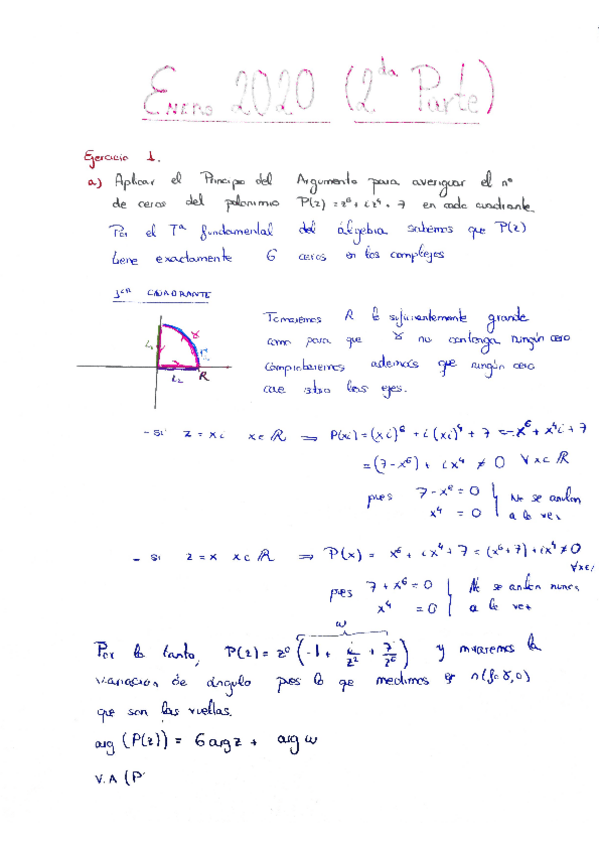 Enero 2020 (2da Parte)
Ejercicio 1.
a) Aplicar el Principio del Argumento para averiguar el nº
de ceros del polinomio P(z) = z⁶ + iz⁴ + 7 en cada cuadrante
Por el Tª fundamental del álgebra sabemos que P(z)
tiene exactamente 6 ceros en los complejos
1er CUADRANTE
Tomaremos R lo suficientemente grande
como para que γ no contenga ningún cero
Comprobaremos además que ningún cero
cae sobre los ejes.
L₁ γ
L₂ R
- si z = xi x∈ℝ ⟹ P(xi) = (xi)⁶ + i(xi)⁴ + 7 = -x⁶ + x⁴i + 7
= (7-x⁶) + ix⁴ ≠ 0 ∀x∈ℝ
pues 7-x⁶ = 0 } No se anulan
x⁴ = 0 } a la vez
- si z = x x∈ℝ ⟹ P(x) = x⁶ + ix⁴ + 7 = (x⁶+7) + ix⁴ ≠ 0
∀x∈
pues 7+x⁶ = 0 } No se anulan nunca
x⁴ = 0 } a la vez
w
Por lo tanto, P(z) = z⁶ (-1 + i/z² + 7/z⁶) y miraremos la
variación de ángulo pues lo que medimos es n(f∘γ,0)
que son las vueltas.
arg (P(z)) = 6 arg z + arg w
V.A (P